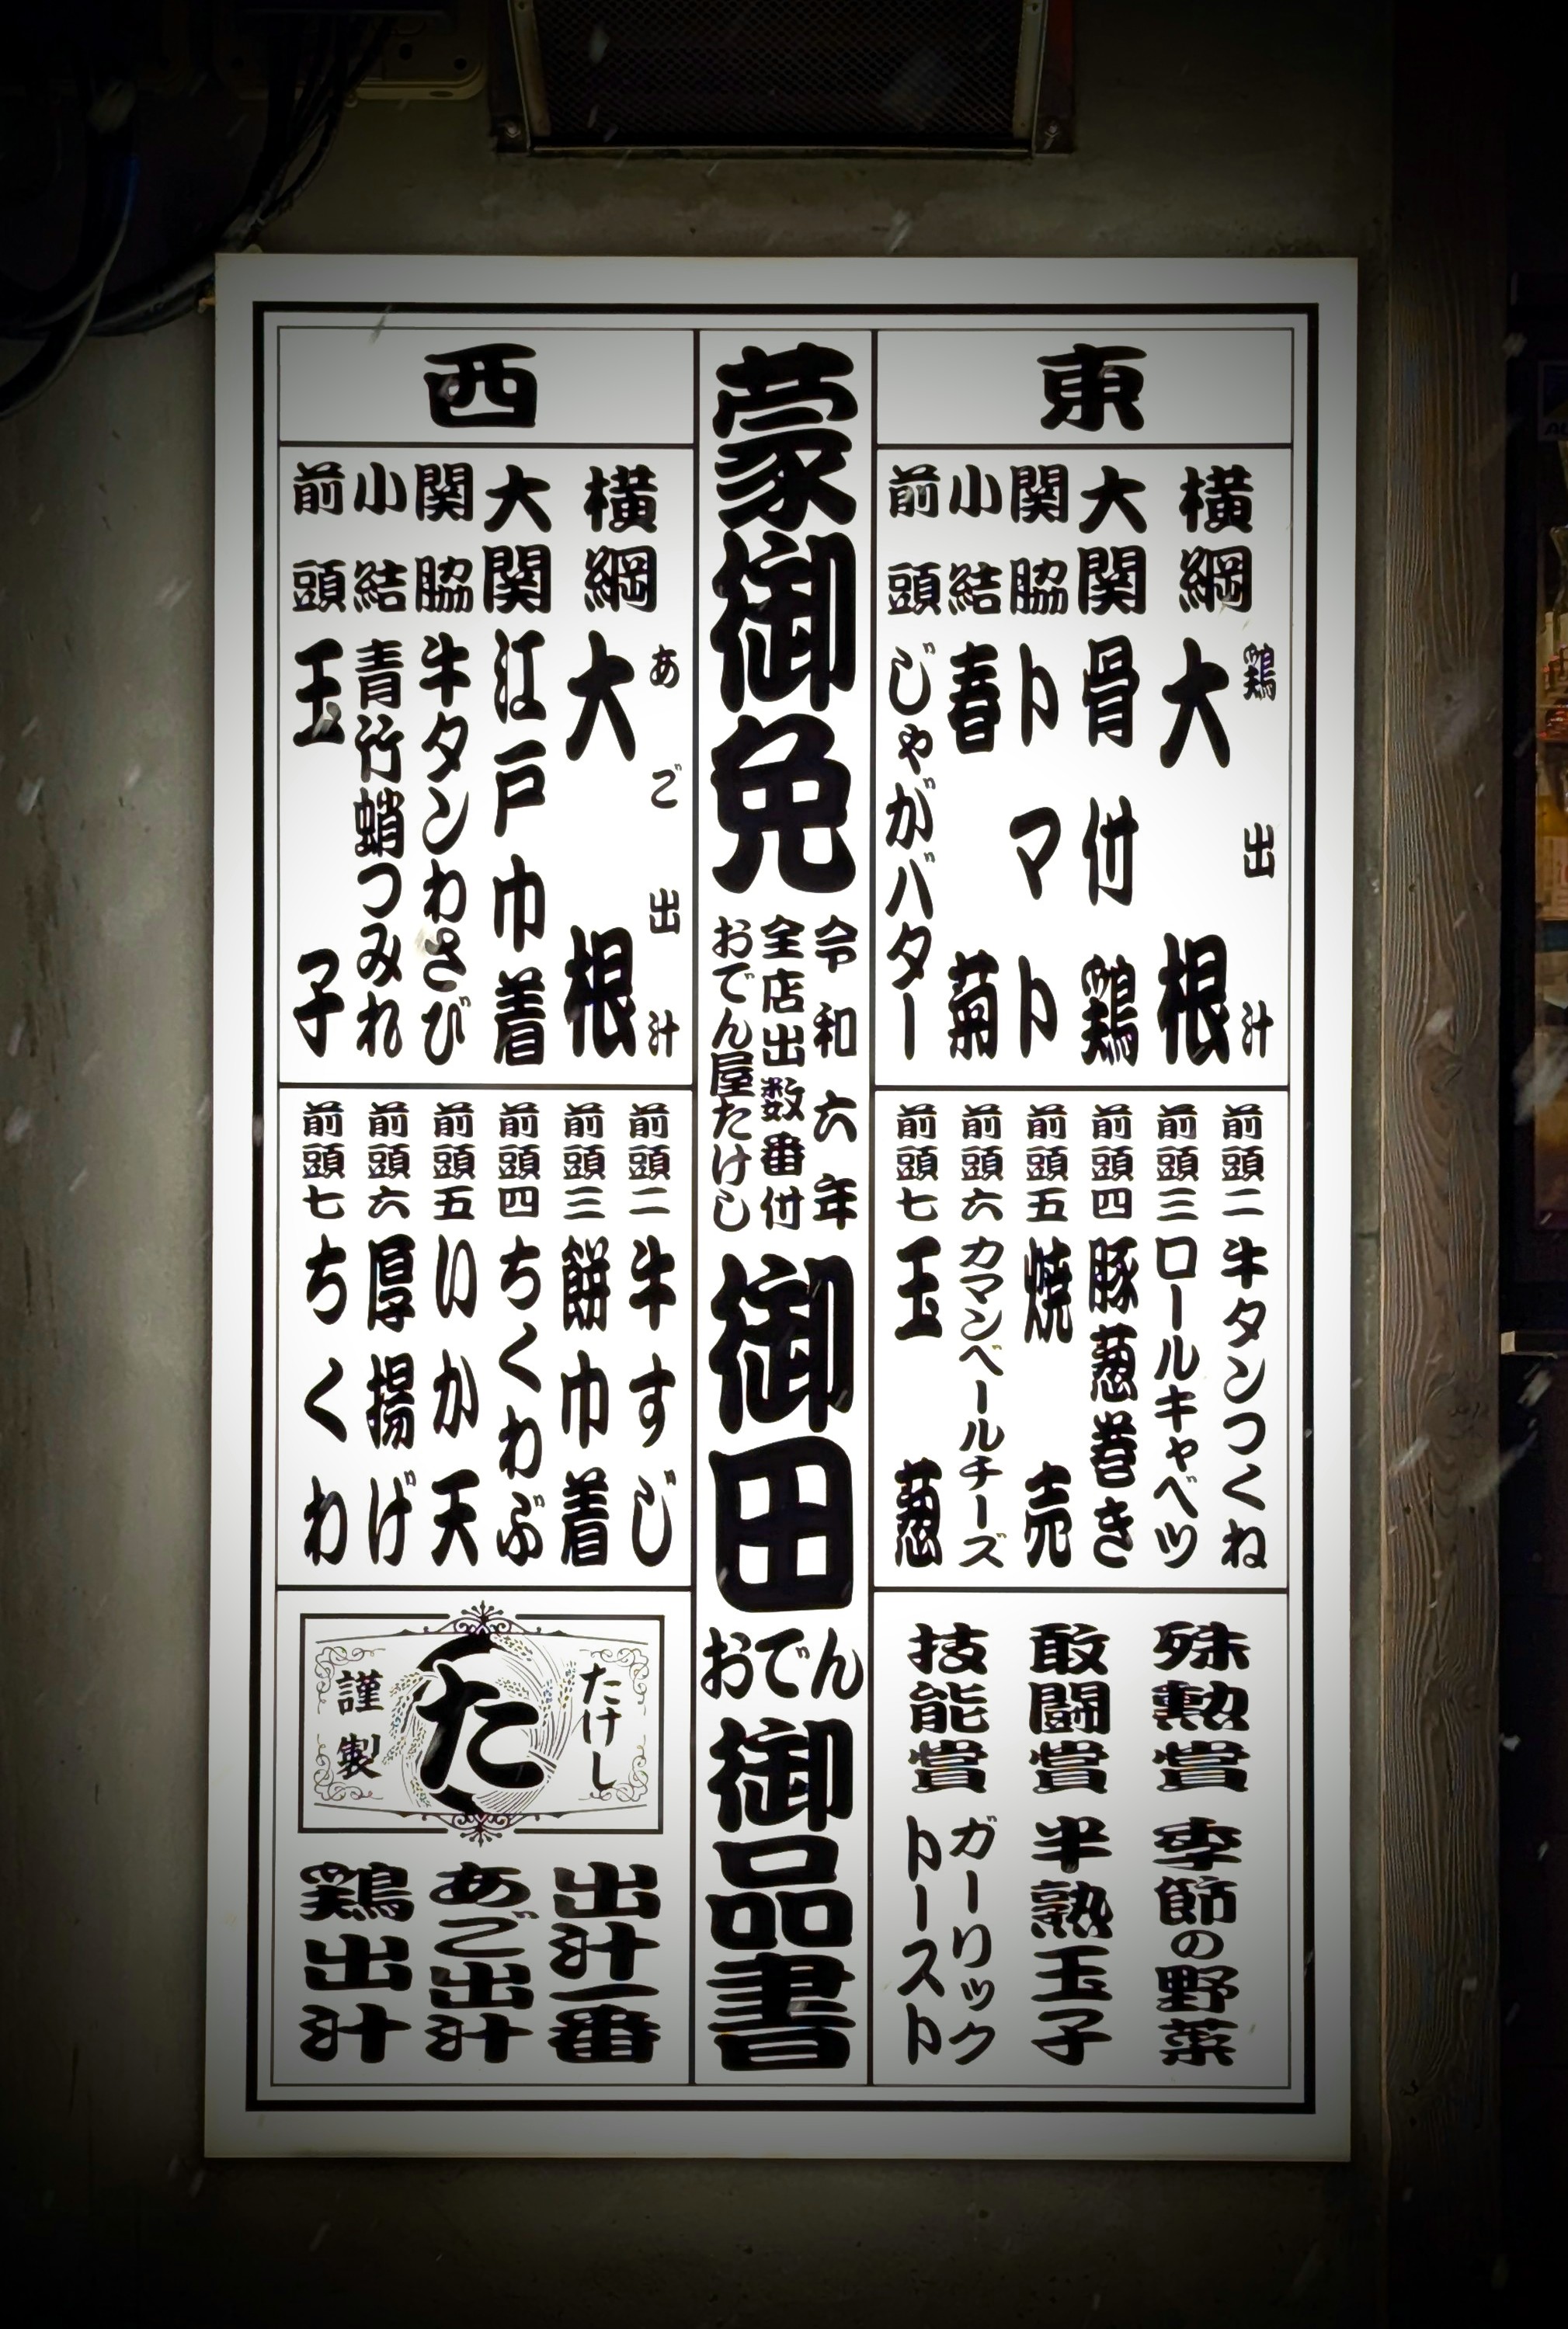 東
横綱 鶏出汁 大根
大関 骨付鶏
関脇 トマト
小結 春菊
前頭 じゃがバター
前頭二 牛タンつくね
前頭三 ロールキャベツ
前頭四 豚葱巻き
前頭五 焼売
前頭六 カマンベールチーズ
前頭七 玉葱
殊勲賞 季節の野菜
敢闘賞 半熟玉子
技能賞 ガーリックトースト
蒙御免
令和六年
全店出数番付
おでん屋たけし
御田
おでん
御品書
西
横綱 あご出汁 大根
大関 江戸巾着
関脇 牛タンわさび
小結 青竹蛸つみれ
前頭 玉子
前頭二 牛すじ
前頭三 餅巾着
前頭四 ちくわぶ
前頭五 いか天
前頭六 厚揚げ
前頭七 ちくわ
たけし
た
謹製
出汁一番
あご出汁
鶏出汁